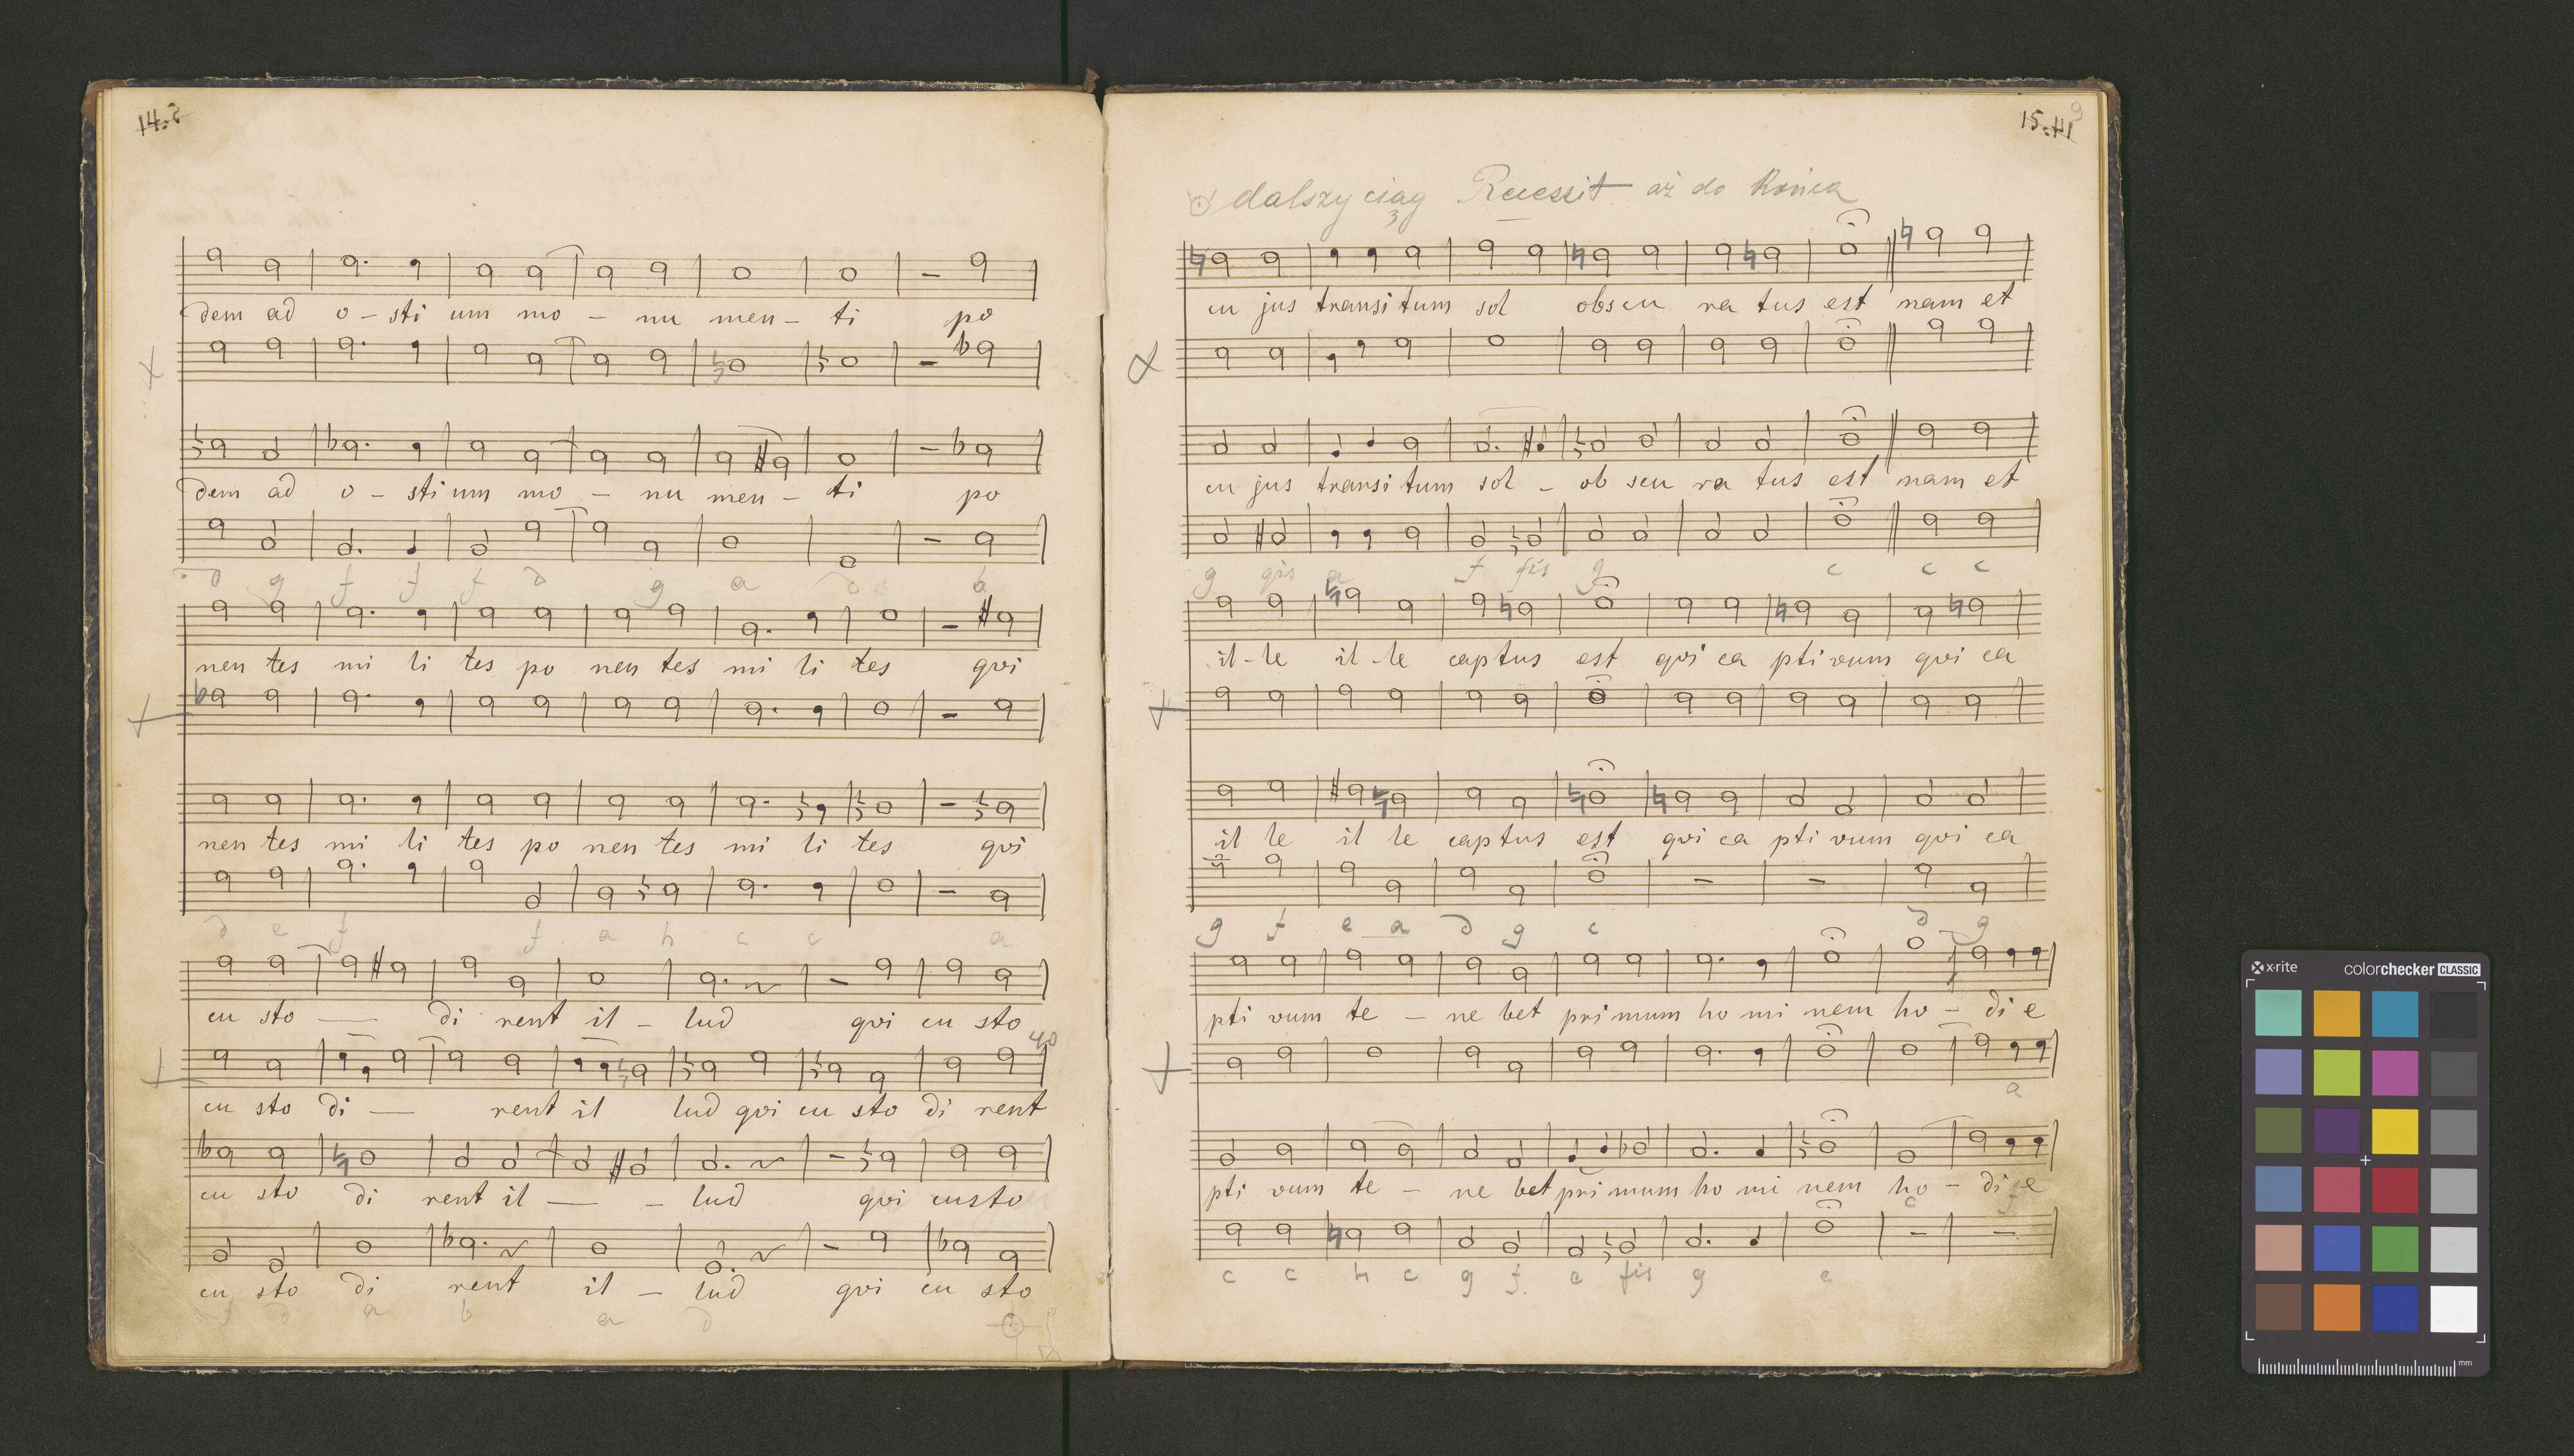 14.
dem ad o - sti um mo - nu men - ti po
dem ad o - sti um mo - nu men - ti po
d g f f f d g a d b
nen tes mi li tes po nen tes mi li tes qvi
nen tes mi li tes po nen tes mi li tes qvi
d e f f a h c c a
cu sto — di rent il - lud qvi cu sto
40
cu sto di — rent il lud qvi cu sto di rent
cu sto di rent il — - lud qvi custo
cu sto di rent il - lud qvi cu sto
f d a b a d
15. 41 9
dalszy ciąg Recessit aż do końca
3
cu jus transi tum sol obscu ra tus est nam et
cu jus transi tum sol - ob scu ra tus est nam et
g gis a f fis g c c c
il - le il - le captus est qvi ca pti vum qvi ca
il le il le captus est qvi ca pti vum qvi ca
g f e a d g c d g
pti vum te - ne bet primum ho mi nem ho - di e
a
pti vum te - ne bet primum ho mi nem ho - di e
c f
c c h c g f e fis g c
x-rite colorchecker CLASSIC
mm